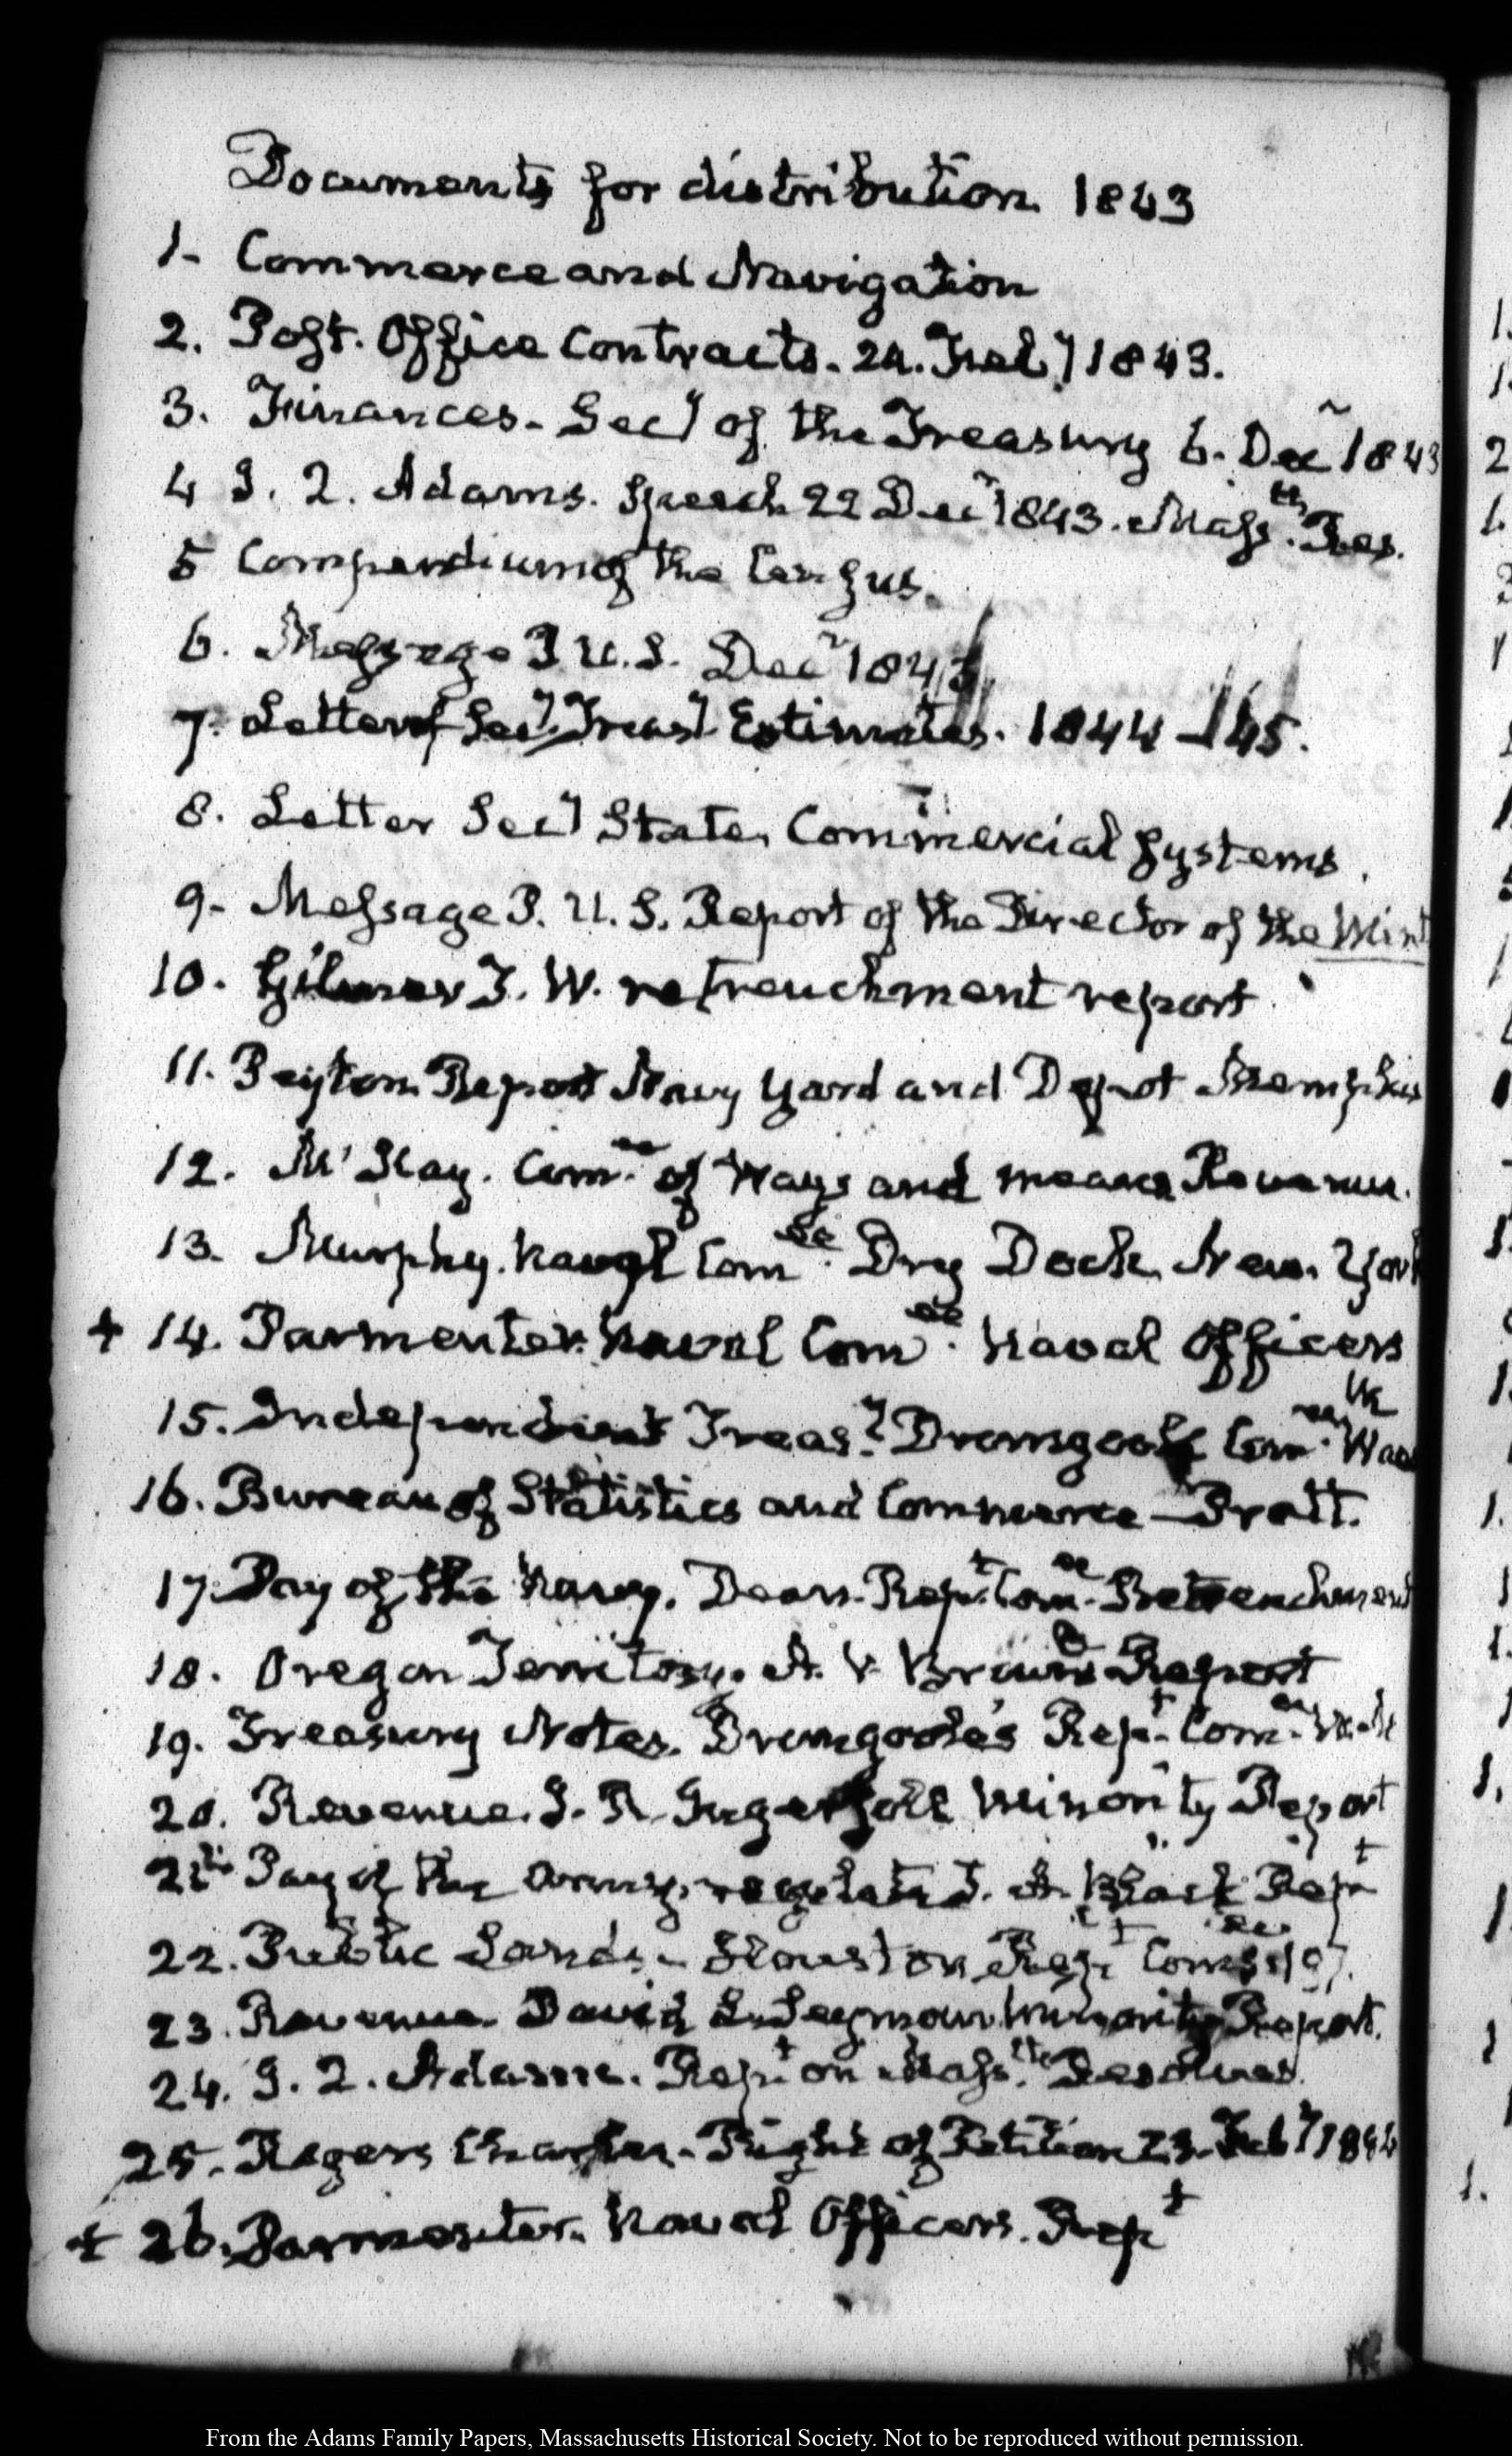 Documents for distribution. 1843
1- Commerce and Navigation
2. Post. Office Contracts. 24. Feby 1843.
3. Finances. Secy of the Treasury 6. Decr 1843
4 J. Q. Adams. Speech 22 Decr 1843. Massts. Res.
5 Compendium of the Census.
6. Message P. U.S. Decr 1843
7. Letter of Secy Treasy Estimates. 1844-45.
8. Letter Secy State, Commercial Systems.
9- Message P. U. S. Report of the Director of the Mint
10. Gilmer T. W. retrenchment report
11. Peyton Report Navy Yard and Depot Memphis
12. McKay. Comee of Ways and means Revenue.
13. Murphy. Naval Comee. Dry Dock. New. York
+ 14. Parmenter. Naval Comee. Naval Officers
15. Independent Treasy. Dromgoole Comee.
16. Bureau of Statistics and Commerce - Pratt.
17. Pay of the Navy. Dean. Rept. Comee. Retrenchment
18. Oregon Territory. A. V. Brown Report
19. Treasury Notes. Dromgoole's Rept. Comee.
20. Revenue. J. R. Ingersoll Minority Report
21. Pay of the Army, regulated. A. Black Rept
22. Public Lands. Houston Rept
23. Revenue. David L. Seymour. Minority Report.
24. J. Q. Adams. Rept on Massts. Resolves.
25. Rogers Charles. Right of Petition 23. Feby 1844
+ 26. Parmenter. Naval Officers. Rept
From the Adams Family Papers, Massachusetts Historical Society. Not to be reproduced without permission.